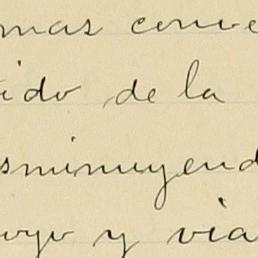 mas conve
ido de la
sminuyend
uyo y via